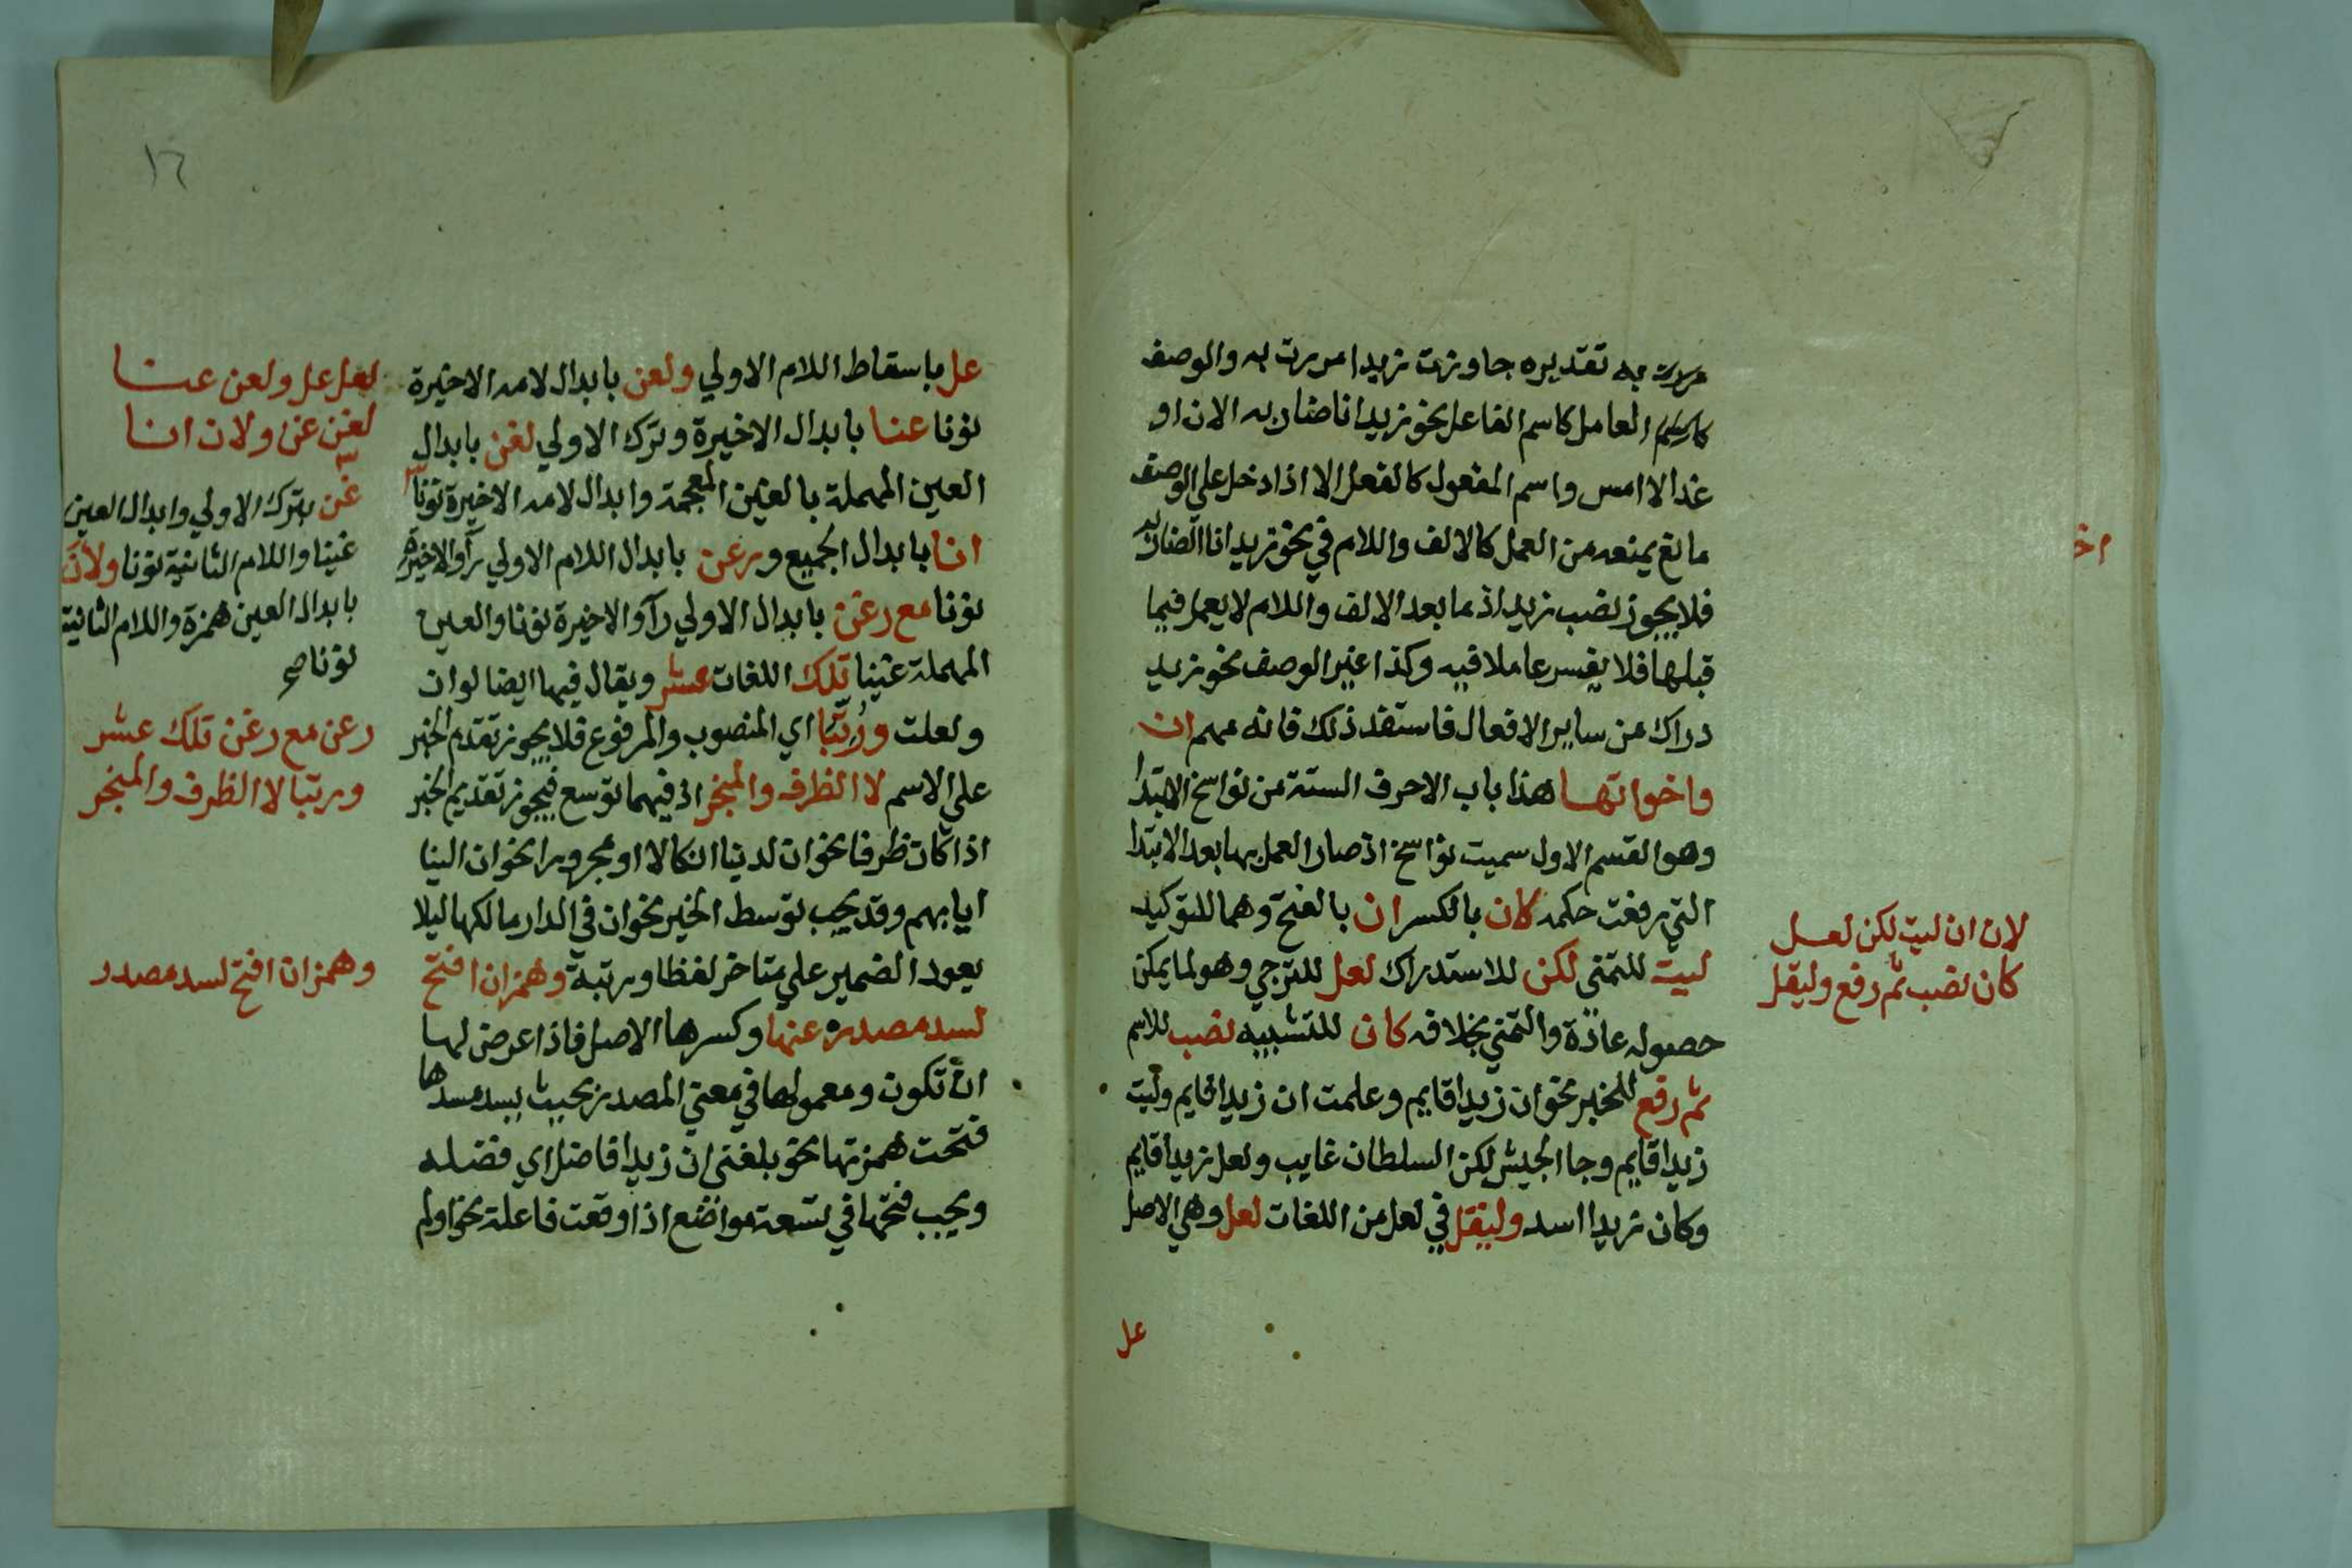 مررت به تقديره جاوزت زيدا مررت به والوصف
العامل كاسم الفاعل نحو زيدا انا ضاربه الان او
غدا لا امس واسم المفعول كالفعل الا اذا دخل علي الوصف
مانع يمنعه من العمل كالالف واللام في نحو زيد انا الضاربه
فلا يجوز نصب زيد اذ ما بعد الالف واللام لا يعمل فيما
قبلها فلا يفسر عاملا فيه وكذا غير الوصف نحو زيد
دراك من ساير الافعال فاستفد ذلك فانه مهم ان
واخواتها هذا باب الاحرف الستة من نواسخ الابتدا
وهو القسم الاول سميت نواسخ اذ صار العمل بها بعد الابتدا
التي رفعت حكمه كان بالكسر ان بالفتح وهما للتوكيد
ليت للتمني لكن للاستدراك لعل للترجي وهو لما يمكن
حصوله عادة والتمني بخلافه كان للتشبيه نصب للاسم
ثم رفع للخبر نحو ان زيدا قايم وعلمت ان زيدا قايم وليت
زيدا قايم وجا الجيش لكن السلطان غايب ولعل زيدا قايم
وكان زيدا اسد وليقل في لعل من اللغات لعل وهي الاصل
عل
لان ان ليت لكن لعل
كان نصب ثم رفع وليقل
اخ
١٦
عل باسقاط اللام الاولي ولعن بابدال لامه الاخيرة
نونا عنا بابدال الاخيرة وترك الاولي لغن بابدال
العين المهملة بالغين المعجمة وابدال لامه الاخيرة نونا
انا بابدال الجميع ورعن بابدال اللام الاولي رآ والاخيرة
نونا مع رغن بابدال الاولي رآ والاخيرة نونا والعين
المهملة غينا تلك اللغات عشر ويقال فيها ايضا لوان
ولعلت ورتبا اي المنصوب والمرفوع فلا يجوز تقدم الخبر
علي الاسم لا الظرف والمنجر اذ فيهما توسع فيجوز تقديم الخبر
اذا كان ظرفا نحو ان لدينا انكالا او مجرورا نحو ان الينا
ايابهم وقد يجب توسط الخبر نحو ان في الدار مالكها ليلا
يعود الضمير علي متاخر لفظا ورتبة وهمز ان افتح
لسد مصدره عنها وكسرها الاصل فاذا عرض لها
ان تكون ومعمولها في معني المصدر بحيث يسد مسدها
فتحت همزتها نحو بلغني ان زيدا فاضل اي فضله
ويجب فتحها في تسعة مواضع اذا وقعت فاعلة نحو اولم
لعل عل ولعن عنا
لغن غن ولان انا
غن بترك الاولي وابدال العين
غينا واللام الثانية نونا ولأن
بابدال العين همزة واللام الثانية
نونا صح
رعن مع رغن تلك عشر
ورتبا لا الظرف والمنجر
وهمز ان افتح لسد مصدر